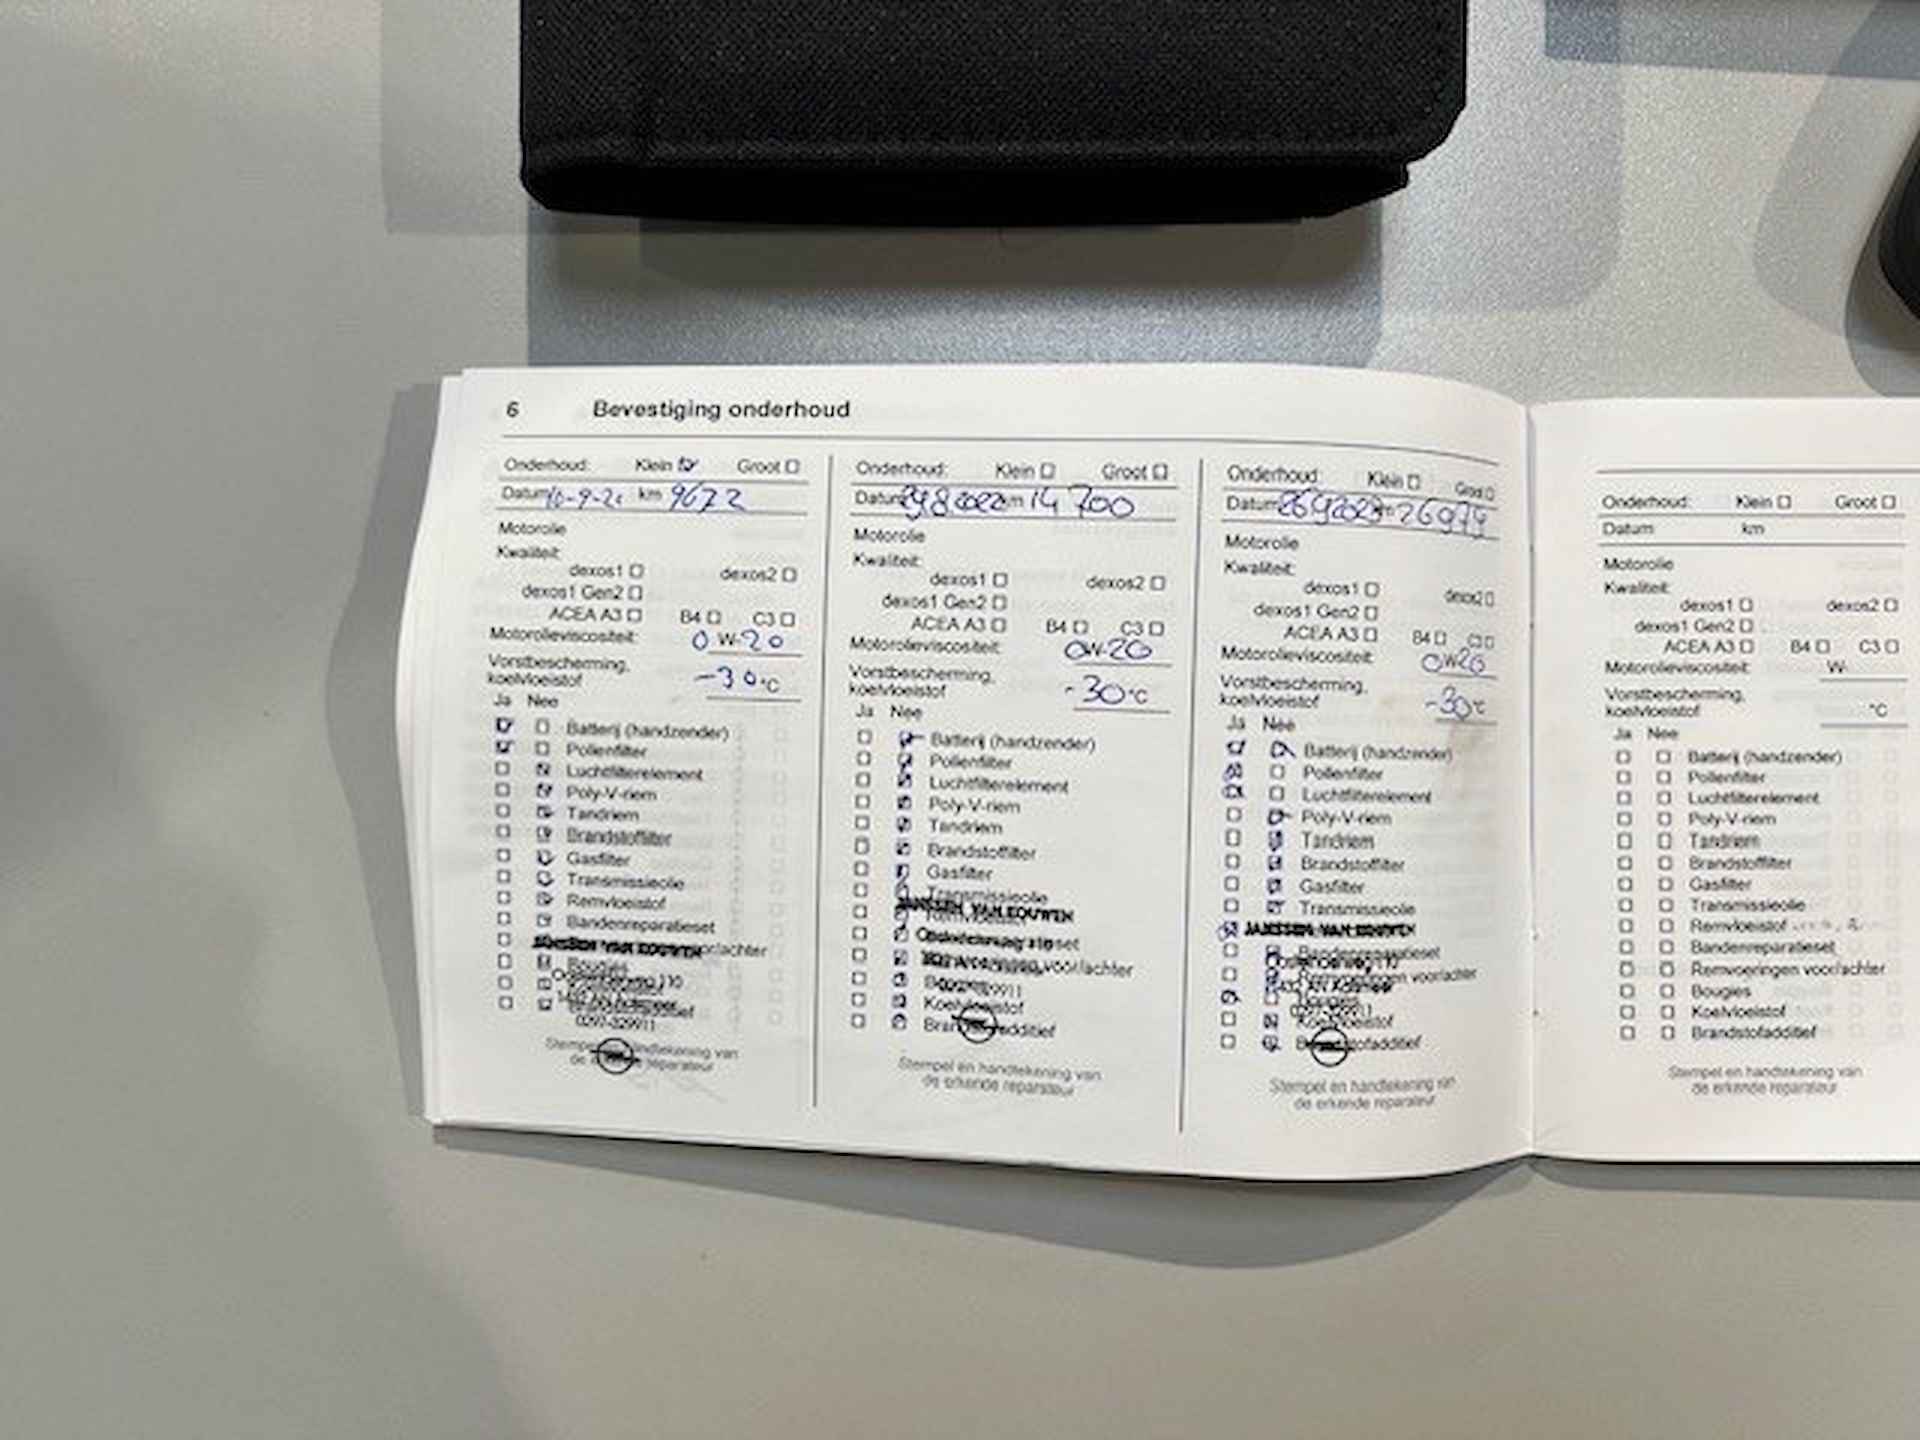 6 Bevestiging onderhoud
Onderhoud: Klein Groot
Datum 10-9-21 km 9672
Motorolie
Kwaliteit:
dexos1 dexos2
dexos1 Gen2
ACEA A3 B4 C3
Motorolieviscositeit: 0 W-20
Vorstbescherming,
koelvloeistof -30 °C
Ja Nee
Batterij (handzender)
Pollenfilter
Luchtfilterelement
Poly-V-riem
Tandriem
Brandstoffilter
Gasfilter
Transmissieolie
Remvloeistof
Bandenreparatieset
JANSSEN VAN KOUWEN voor/achter
Bougies
110
Brandstofadditief
0297-329911
Stempel en handtekening van
de erkende reparateur
Onderhoud: Klein Groot
Datum 29 8 2022 km 14 700
Motorolie
Kwaliteit:
dexos1 dexos2
dexos1 Gen2
ACEA A3 B4 C3
Motorolieviscositeit: 0W-20
Vorstbescherming,
koelvloeistof -30 °C
Ja Nee
Batterij (handzender)
Pollenfilter
Luchtfilterelement
Poly-V-riem
Tandriem
Brandstoffilter
Gasfilter
Transmissieolie
JANSSEN VAN KOUWEN
Remvloeistof
Remvoeringen voor/achter
Koelvloeistof
Brandstofadditief
Stempel en handtekening van
de erkende reparateur
Onderhoud: Klein Groot
Datum 26 9 2023 km 26974
Motorolie
Kwaliteit:
dexos1 dexos2
dexos1 Gen2
ACEA A3 B4 C3
Motorolieviscositeit: 0W20
Vorstbescherming,
koelvloeistof -30 °C
Ja Nee
Batterij (handzender)
Pollenfilter
Luchtfilterelement
Poly-V-riem
Tandriem
Brandstoffilter
Gasfilter
Transmissieolie
JANSSEN VAN KOUWEN
Bandenreparatieset
Remvoeringen voor/achter
Bougies
Koelvloeistof
Brandstofadditief
Stempel en handtekening van
de erkende reparateur
Onderhoud: Klein Groot
Datum km
Motorolie
Kwaliteit:
dexos1 dexos2
dexos1 Gen2
ACEA A3 B4 C3
Motorolieviscositeit: W-
Vorstbescherming,
koelvloeistof °C
Ja Nee
Batterij (handzender)
Pollenfilter
Luchtfilterelement
Poly-V-riem
Tandriem
Brandstoffilter
Gasfilter
Transmissieolie
Remvloeistof
Bandenreparatieset
Remvoeringen voor/achter
Bougies
Koelvloeistof
Brandstofadditief
Stempel en handtekening van
de erkende reparateur